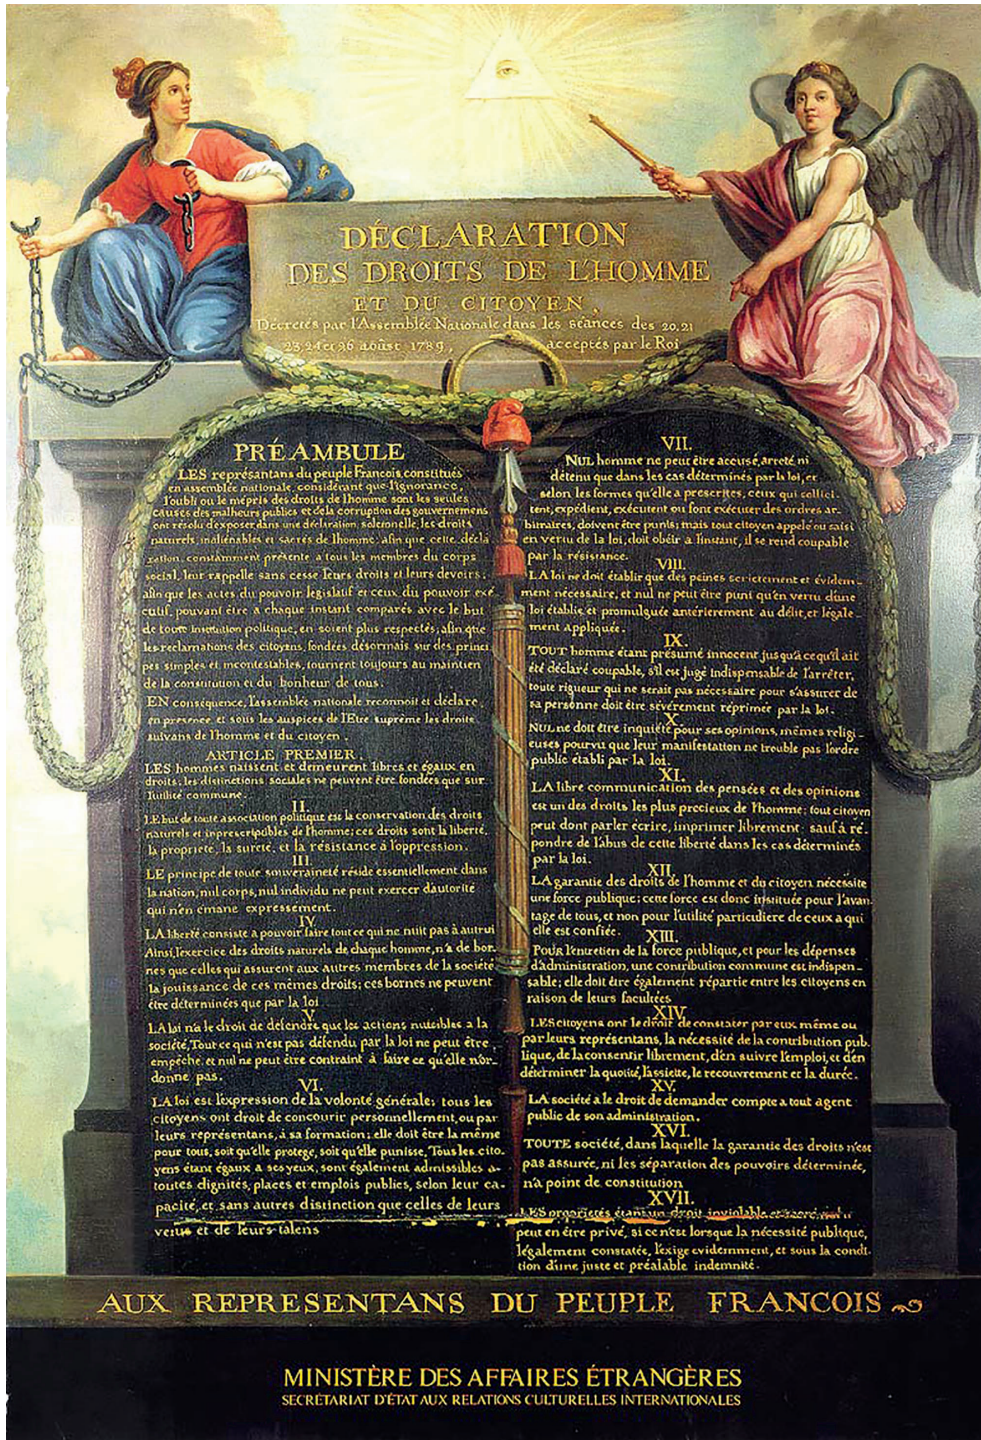 DÉCLARATION
DES DROITS DE L'HOMME
ET DU CITOYEN,
Décretés par l'Assemblée Nationale dans les séances des 20.21
23.24 et 26 aoûst 1789, acceptés par le Roi
PRÉAMBULE
LES représantans du peuple Francois, constitués
en assemblée nationale, considérant que l'ignorance,
l'oubli ou le mépris des droits de l'homme sont les seules
causes des malheurs publics et de la corruption des gouvernemens
ont résolu d'exposer dans une déclaration solemnelle, les droits
naturels, inaliénables et sacrés de l'homme: afin que cette décla
ration, constamment présente a tous les membres du corps
social, leur rappelle sans cesse leurs droits et leurs devoirs,
afin que les actes du pouvoir législatif et ceux du pouvoir exé
cutif, pouvant être a chaque instant comparés avec le but
de toute institution politique, en soient plus respectés; afin que
les reclamations des citoyens, fondées désormais sur des princi
pes simples et incontestables, tournent toujours au maintien
de la constitution et du bonheur de tous.
EN conséquence, l'assemblée nationale reconnoit et déclare,
en presence et sous les auspices de l'Etre suprême les droits
suivans de l'homme et du citoyen.
ARTICLE PREMIER.
LES hommes naissent et demeurent libres et égaux en
droits; les distinctions sociales ne peuvent être fondées que sur
l'utilité commune.
II.
LE but de toute association politique est la conservation des droits
naturels et inprescriptibles de l'homme; ces droits sont la liberté,
la propriété, la sureté, et la résistance à l'oppression.
III.
LE principe de toute souveraineté réside essentiellement dans
la nation, nul corps, nul individu ne peut exercer d'autorité
qui n'en émane expressement.
IV.
LA liberté consiste a pouvoir faire tout ce qui ne nuit pas à autrui
Ainsi, l'exercice des droits naturels de chaque homme, n'a de bor
nes que celles qui assurent aux autres membres de la société
la jouissance de ces mêmes droits; ces bornes ne peuvent
être déterminées que par la loi
V.
LA loi n'a le droit de défendre que les actions nuisibles a la
société, Tout ce qui n'est pas défendu par la loi ne peut être
empêché, et nul ne peut être contraint à faire ce qu'elle n'or-
donne pas.
VI.
LA loi est l'expression de la volonté générale; tous les
citoyens ont droit de concourir personnellement, ou par
leurs représentans, à sa formation; elle doit être la même
pour tous, soit qu'elle protege, soit qu'elle punisse, Tous les cito-
yens étant égaux a ses yeux, sont également admissibles a
toutes dignités, places et emplois publics, selon leur ca-
pacité, et sans autres distinction que celles de leurs
vertus et de leurs talens
VII.
NUL homme ne peut être accusé, arreté, ni
détenu que dans les cas déterminés par la loi, et
selon les formes qu'elle a prescrites, ceux qui sollici-
tent, expédient, exécutent ou font exécuter des ordres ar-
bitraires, doivent être punis; mais tout citoyen appelé ou saisi
en vertu de la loi, doit obéir a l'instant, il se rend coupable
par la résistance.
VIII.
LA loi ne doit établir que des peines strictement et évidem-
ment nécessaire, et nul ne peut être puni qu'en vertu d'une
loi établie et promulguée antérierement au délit, et légale-
ment appliquée.
IX.
TOUT homme étant présumé innocent jusqu'à ce qu'il ait
été déclaré coupable, s'il est jugé indispensable de l'arrêter,
toute rigueur qui ne serait pas nécessaire pour s'assurer de
sa personne doit être sévèrement réprimée par la loi.
X.
NUL ne doit être inquiété pour ses opinions, mêmes religi-
euses pourvu que leur manifestation ne trouble pas l'ordre
public établi par la loi.
XI.
LA libre communication des pensées et des opinions
est un des droits les plus precieux de l'homme; tout citoyen
peut dont parler écrire, imprimer librement, sauf à ré-
pondre de l'abus de cette liberté dans les cas déterminés
par la loi.
XII.
LA garantie des droits de l'homme et du citoyen nécessite
une force publique; cette force est donc instituée pour l'avan
tage de tous, et non pour l'utilité particuliere de ceux a qui
elle est confiée.
XIII.
POUR l'entretien de la force publique, et pour les dépenses
d'administration, une contribution commune est indispen-
sable; elle doit être également répartie entre les citoyens en
raison de leurs facultées
XIV.
LES citoyens ont le droit de constater par eux même ou
par leurs représentans, la nécessité de la contribution pub-
lique, de la consentir librement, d'en suivre l'emploi, et d'en
déterminer la quotité, l'assiette, le recouvrement et la durée.
XV.
LA société a le droit de demander compte a tout agent
public de son administration.
XVI.
TOUTE société, dans laquelle la garantie des droits n'est
pas assurée, ni les séparation des pouvoirs déterminée,
n'a point de constitution
XVII.
LES propriétés étant un droit inviolable et sacré, nul n
peut en être privé, si ce n'est lorsque la nécessité publique,
légalement constatée, l'exige evidemment, et sous la condi-
tion d'une juste et préalable indemnité.
AUX REPRESENTANS DU PEUPLE FRANCOIS
MINISTÈRE DES AFFAIRES ÉTRANGÈRES
SECRÉTARIAT D'ÉTAT AUX RELATIONS CULTURELLES INTERNATIONALES